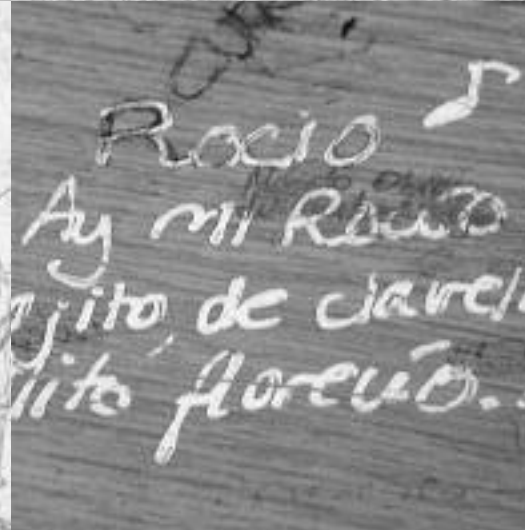 Rocio
Ay mi Rocío
ojito, de clavel
llito florecío..